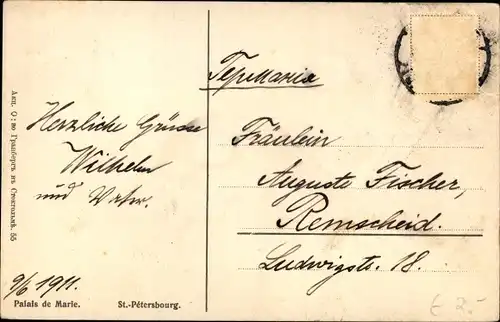 Германия
Herzliche Grüsse
Wilhelm
und Vater.
9/6 1911.
Fräulein
Auguste Fischer,
Remscheid.
Ludwigstr. 18.
Акц. О: во Гранбергъ въ Стокгольмѣ. 55
Palais de Marie. St.-Pétersbourg.
€ 2.-